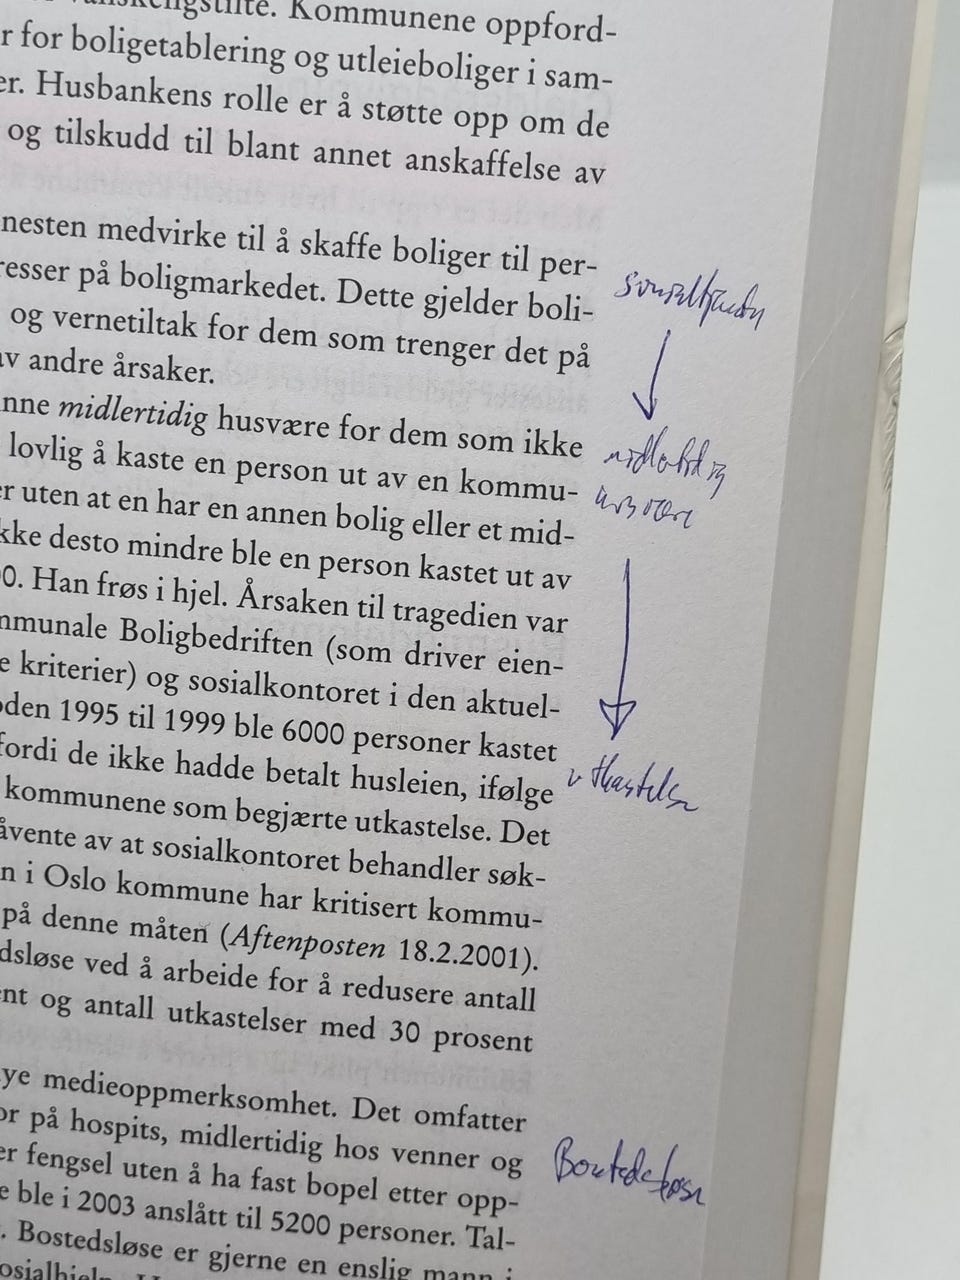 vanskeligstilte. Kommunene oppford-
r for boligetablering og utleieboliger i sam-
er. Husbankens rolle er å støtte opp om de
og tilskudd til blant annet anskaffelse av
nesten medvirke til å skaffe boliger til per-
resser på boligmarkedet. Dette gjelder boli-
sosialtjenesten
og vernetiltak for dem som trenger det på
av andre årsaker.
nne midlertidig husvære for dem som ikke
midlertidig
lovlig å kaste en person ut av en kommu-
husvære
er uten at en har en annen bolig eller et mid-
kke desto mindre ble en person kastet ut av
00. Han frøs i hjel. Årsaken til tragedien var
mmunale Boligbedriften (som driver eien-
e kriterier) og sosialkontoret i den aktuel-
oden 1995 til 1999 ble 6000 personer kastet
fordi de ikke hadde betalt husleien, ifølge
utkastelse
kommunene som begjærte utkastelse. Det
åvente av at sosialkontoret behandler søk-
n i Oslo kommune har kritisert kommu-
på denne måten (Aftenposten 18.2.2001).
dsløse ved å arbeide for å redusere antall
ent og antall utkastelser med 30 prosent
ye medieoppmerksomhet. Det omfatter
or på hospits, midlertidig hos venner og
Bostedsløse
er fengsel uten å ha fast bopel etter opp-
e ble i 2003 anslått til 5200 personer. Tal-
. Bostedsløse er gjerne en enslig mann i
osialhjelp.